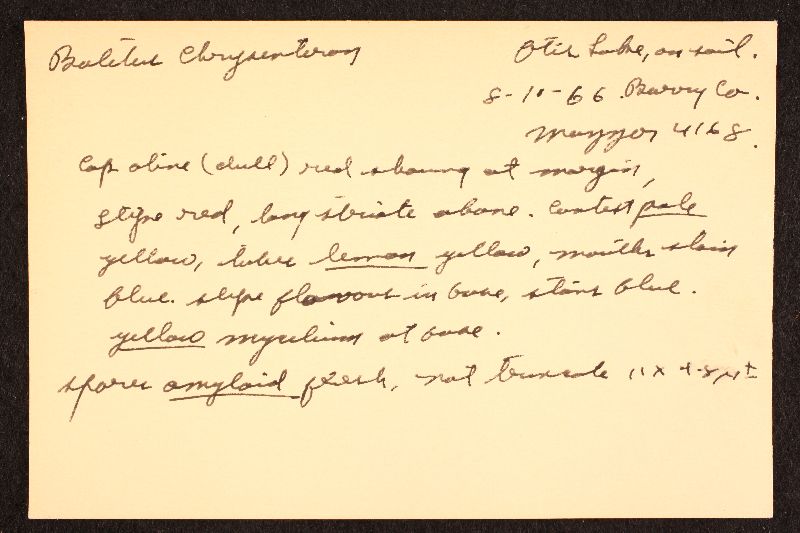 Boletus Chrysenteron
Otis Lake, on soil.
8-10-66 Barry Co.
Mazzer 4168.
Cap olive (dull) red showing at margin,
stipe red, long striate above. Context pale
yellow, tubes lemon yellow, mouths stain
blue. stipe flavous in base, stains blue.
yellow mycelium at base.
spores amyloid fresh, not truncate 11 x µ±